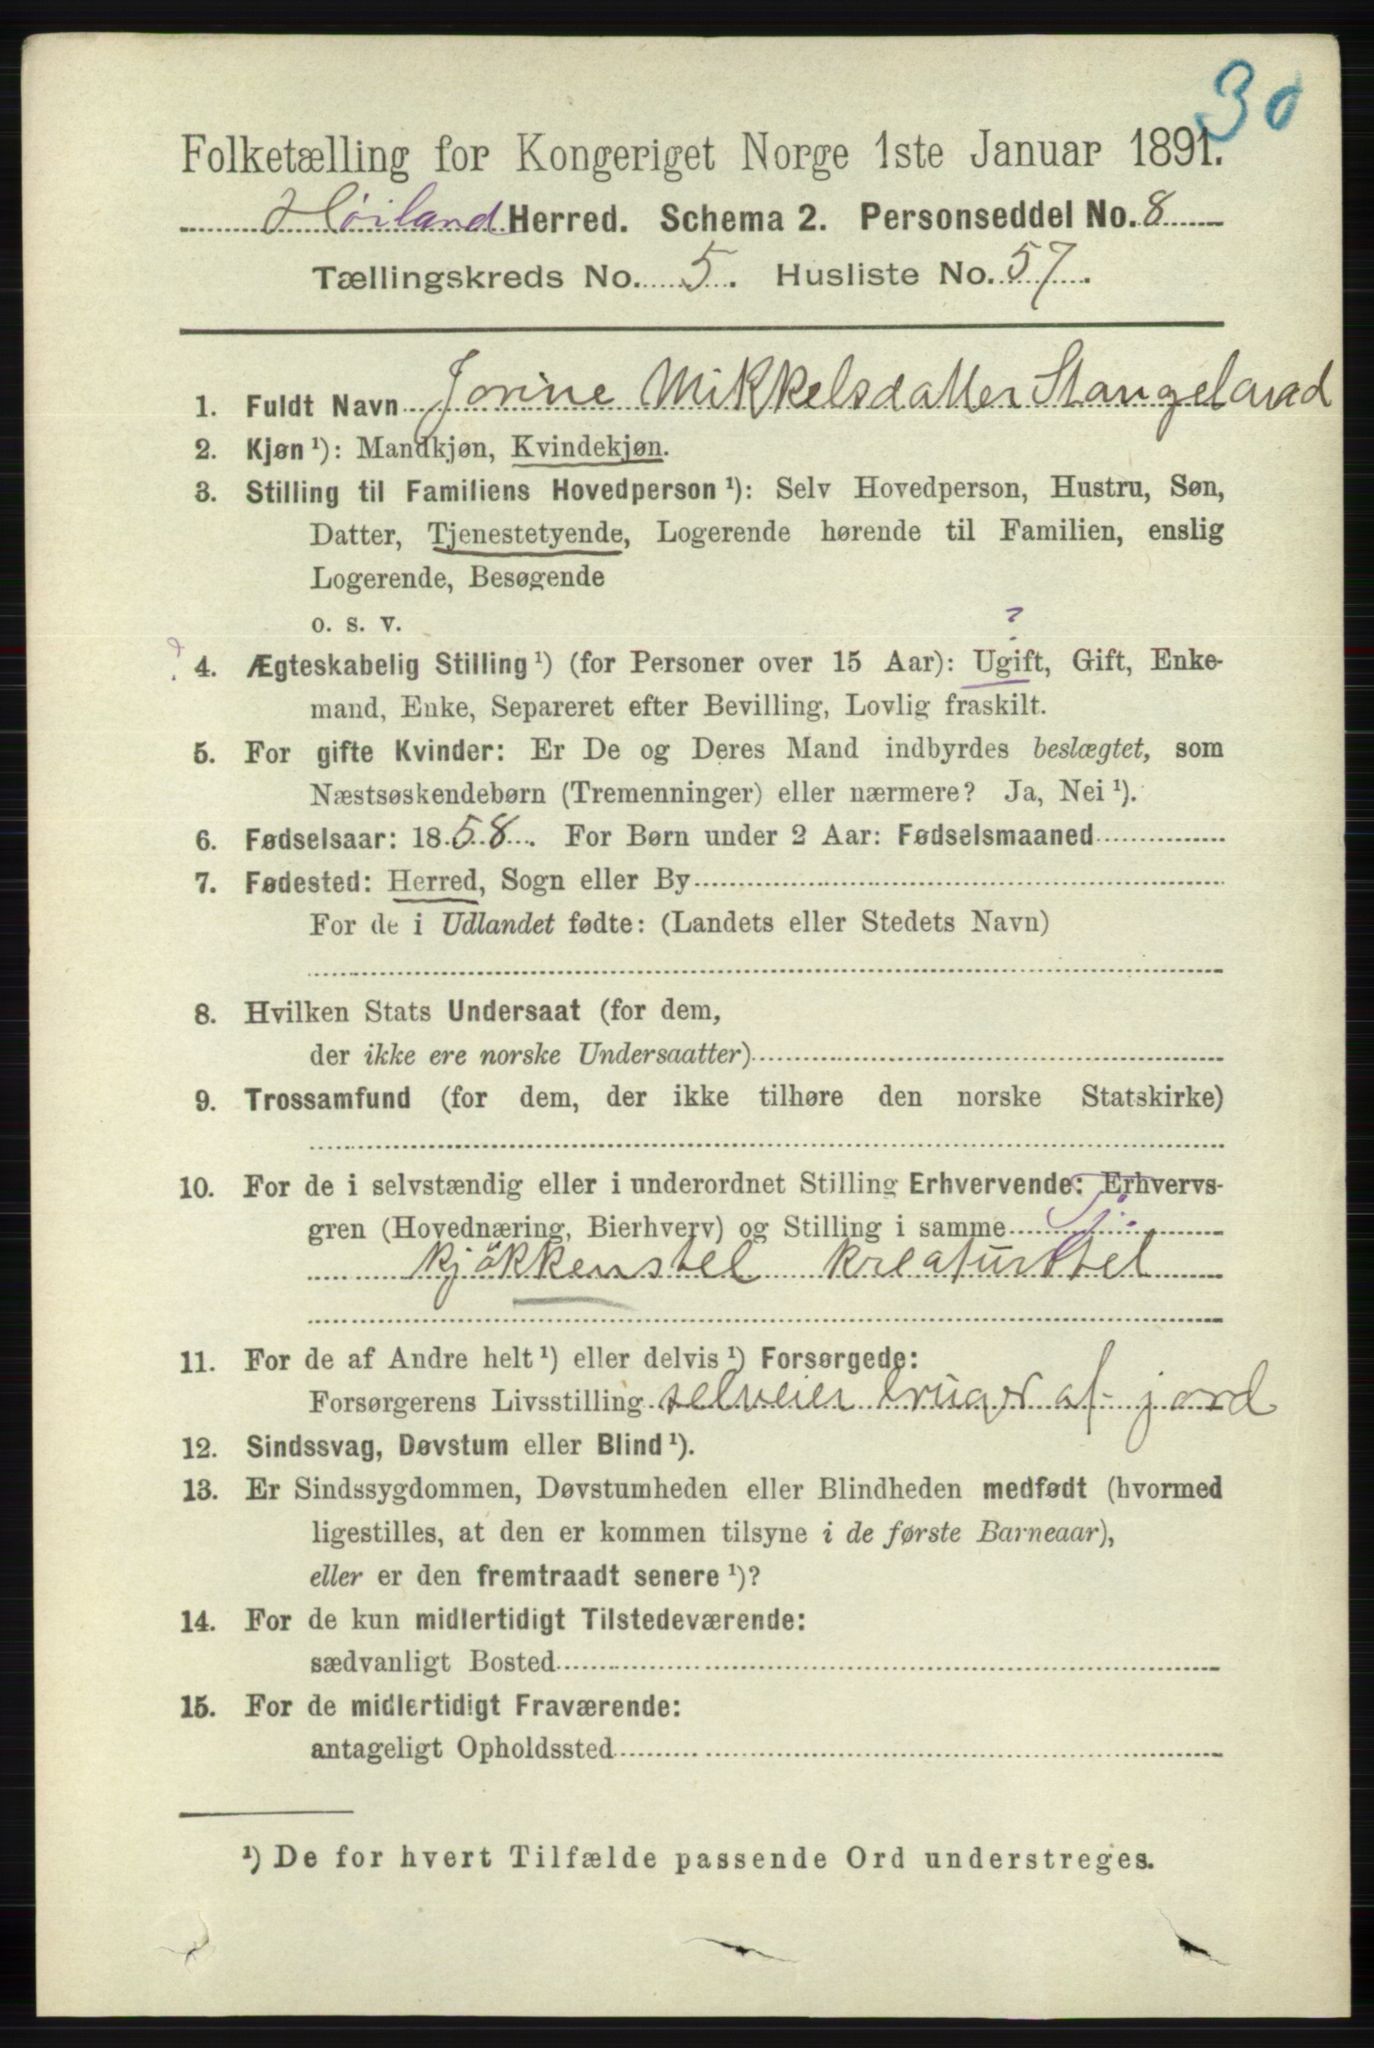 30
Folketælling for Kongeriget Norge 1ste Januar 1891.
Høiland Herred. Schema 2. Personseddel No. 8
Tællingskreds No. 5. Husliste No. 57.
1. Fuldt Navn Jorine Mikkelsdatter Stangeland
2. Kjøn ¹): Mandkjøn, Kvindekjøn.
3. Stilling til Familiens Hovedperson ¹): Selv Hovedperson, Hustru, Søn,
Datter, Tjenestetyende, Logerende hørende til Familien, enslig
Logerende, Besøgende
o. s. v.
?
? 4. Ægteskabelig Stilling ¹) (for Personer over 15 Aar): Ugift, Gift, Enke-
mand, Enke, Separeret efter Bevilling, Lovlig fraskilt.
5. For gifte Kvinder: Er De og Deres Mand indbyrdes beslægtet, som
Næstsøskendebørn (Tremenninger) eller nærmere? Ja, Nei ¹).
6. Fødselsaar: 1858. For Børn under 2 Aar: Fødselsmaaned
7. Fødested: Herred, Sogn eller By
For de i Udlandet fødte: (Landets eller Stedets Navn)
8. Hvilken Stats Undersaat (for dem,
der ikke ere norske Undersaatter)
9. Trossamfund (for dem, der ikke tilhøre den norske Statskirke)
10. For de i selvstændig eller i underordnet Stilling Erhvervende: Erhvervs-
gren (Hovednæring, Bierhverv) og Stilling i samme Tj.
kjökkenstel kreaturstel
11. For de af Andre helt ¹) eller delvis ¹) Forsørgede:
Forsørgerens Livsstilling selveier bruger af jord
12. Sindssvag, Døvstum eller Blind ¹).
13. Er Sindssygdommen, Døvstumheden eller Blindheden medfødt (hvormed
ligestilles, at den er kommen tilsyne i de første Barneaar),
eller er den fremtraadt senere ¹)?
14. For de kun midlertidigt Tilstedeværende:
sædvanligt Bosted
15. For de midlertidigt Fraværende:
antageligt Opholdssted
¹) De for hvert Tilfælde passende Ord understreges.